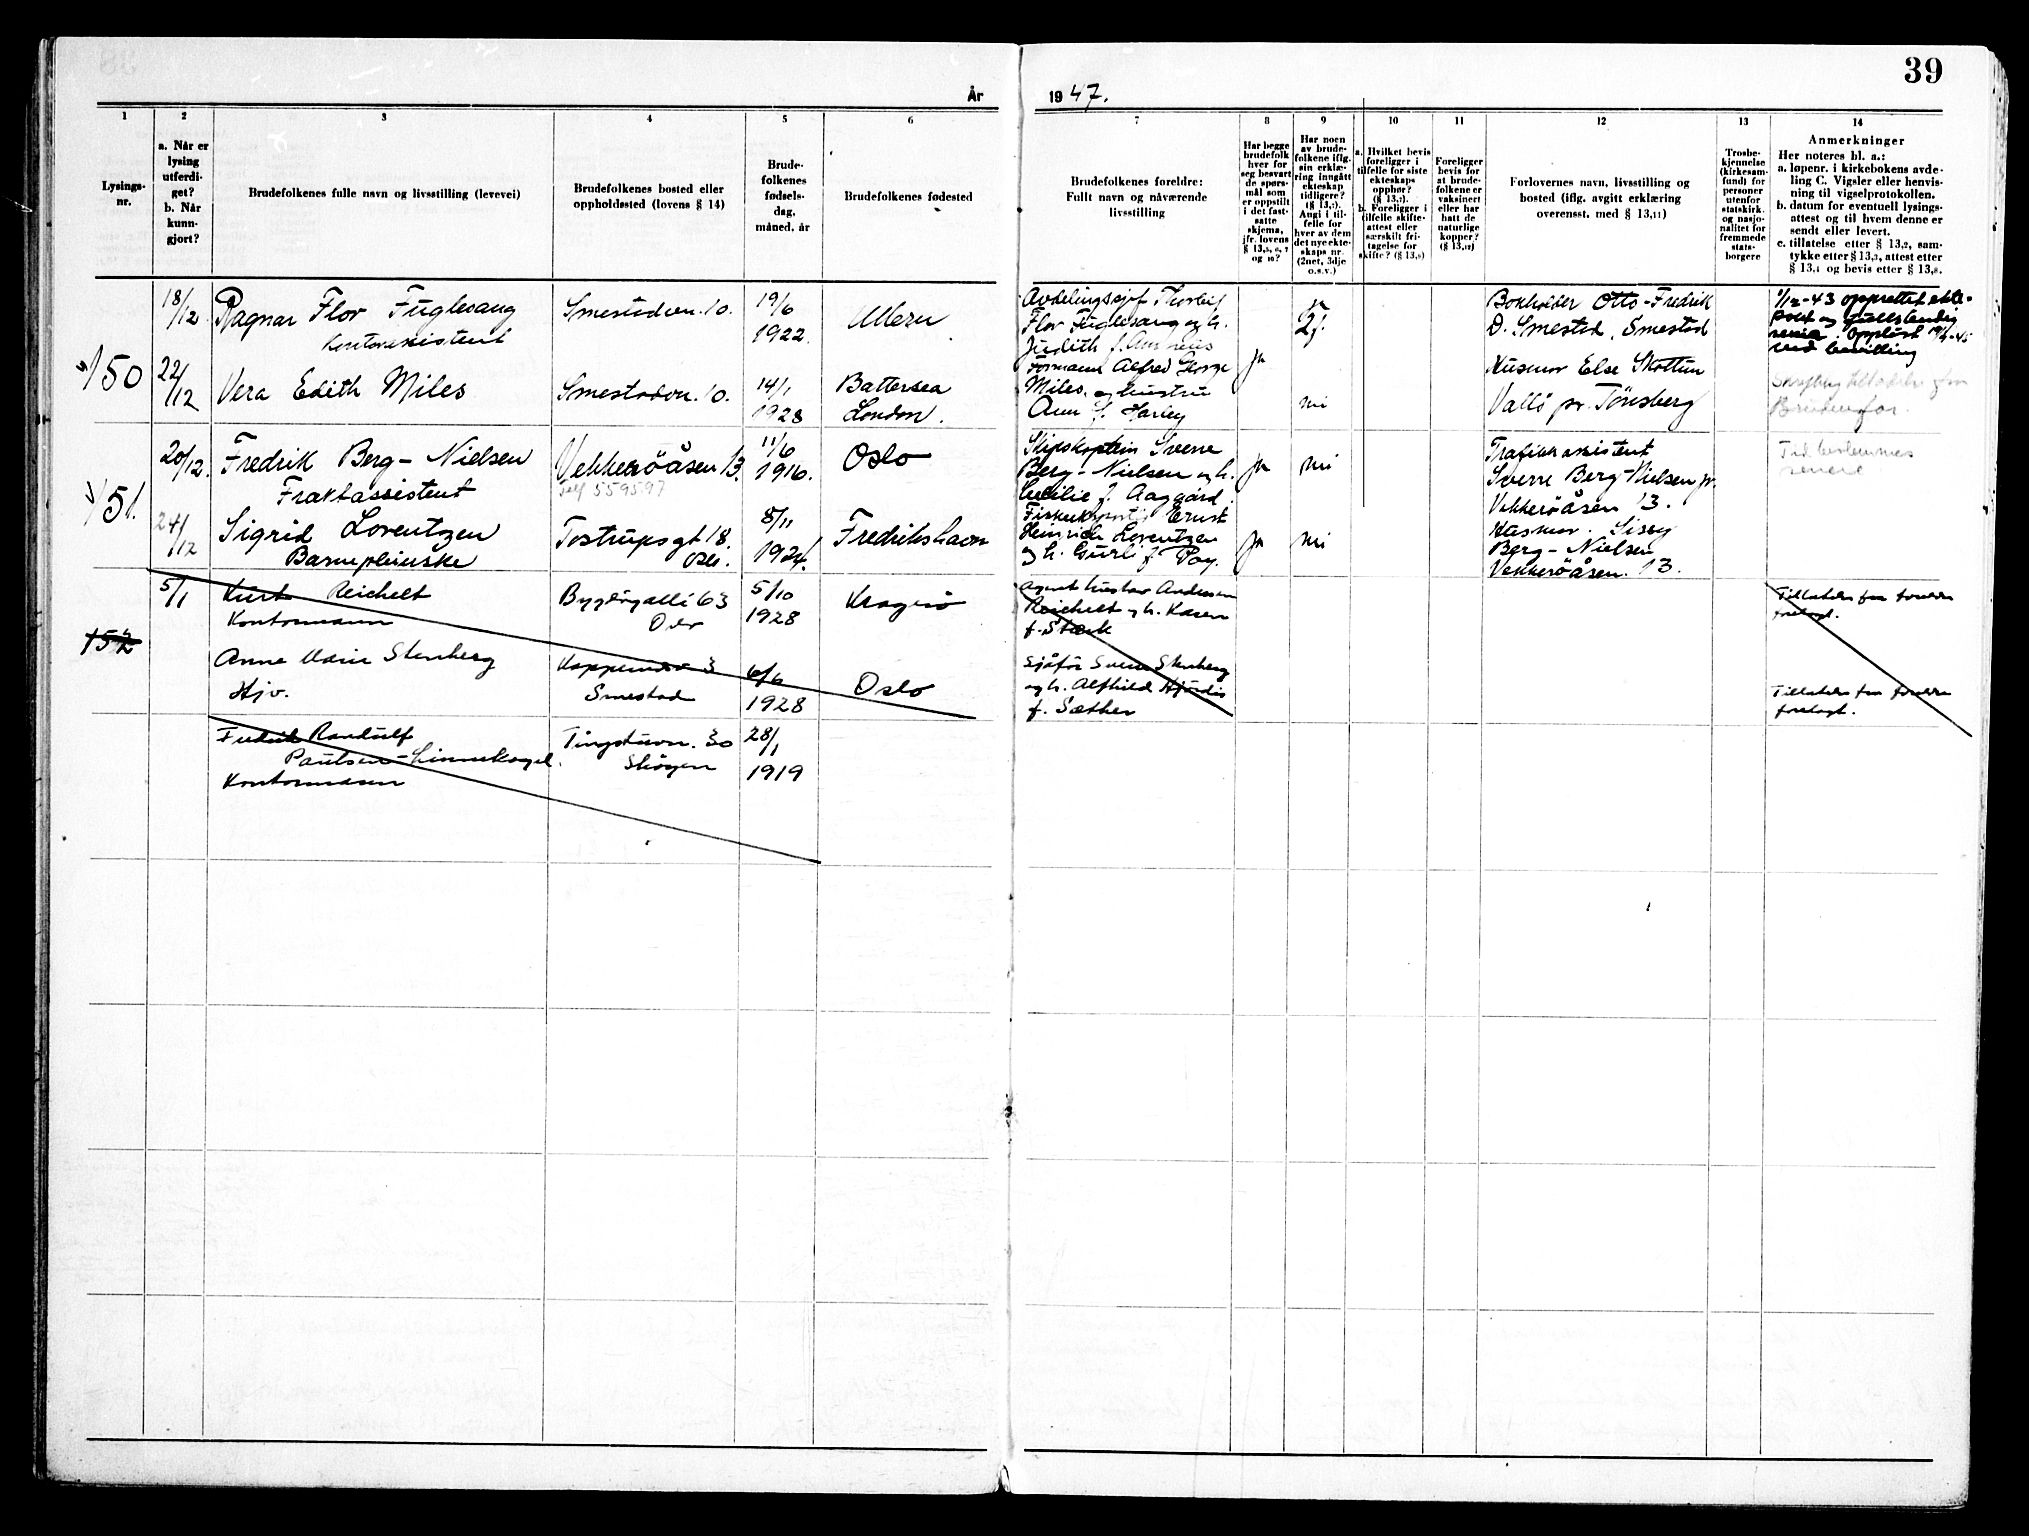 39
År
19 47.
1
2
3
4
5
6
7
8
9
10
11
12
13
14
Lysings-
nr.
a. Når er
lysing
utferdi-
get?
b. Når
kunn-
gjort?
Brudefolkenes fulle navn og livsstilling (levevei)
Brudefolkenes bosted eller
oppholdssted (lovens § 14)
Brude-
folkenes
fødsels-
dag,
måned, år
Brudefolkenes fødested
Brudefolkenes foreldre:
Fullt navn og nåværende
livsstilling
Har begge
brudefolk
hver for
seg besvart
de spørs-
mål som
er oppstilt
i det fast-
satte
skjema,
jfr. lovens
og 10?
Har noen
av brude-
folkene iflg.
sin erklæ-
ring inngått
ekteskap
tidligere?
(§ 13,7).
Angi i til-
felle for
hver av dem
det nye ekte-
skaps nr.
(2net, 3dje
o.s.v.)
a. Hvilket bevis
foreligger i
tilfelle for siste
ekteskaps
opphør?
(§ 13,7).
b. Foreligger i
tilfelle skifte-
attest eller
særskilt fri-
tagelse for
skifte? (§ 13,8)
Foreligger
bevis for
at brude-
folkene er
vaksinert
eller har
hatt de
naturlige
kopper?
(§ 13,12)
Forlovernes navn, livsstilling og
bosted (iflg. avgitt erklæring
overensst. med § 13,11)
Trosbe-
kjennelse
(kirkesam-
fund) for
personer
utenfor
statskirk.
og nasjo-
nalitet for
fremmede
stats-
borgere
Anmerkninger
Her noteres bl. a.:
a. løpenr. i kirkebokens avde-
ling C. Vigsler eller henvis-
ning til vigselprotokollen.
b. datum for eventuell lysings-
attest og til hvem denne er
sendt eller levert.
c. tillatelse etter § 13,2, sam-
tykke etter § 13,3, attest etter
§ 13,4 og bevis etter § 13,8.
150
18/12
Ragnar Flor Fuglesang
kontorassistent
Smestadvn. 10.
19/6
1922.
Ullern
Avdelingssjef Thorleif
Flor Fuglesang og h.
Judith f.
ja
2).
Bokholder Otto-Fredrik
D. Smestad, Smestad
1/12-43 opprettet ekte-
Oppløst
ved bevilling
22/12
Vera Edith Miles
Smestadvn. 10.
14/1
1928
Battersea
London.
Formann Alfred George
Miles, og hustru
Ann f. Harley
ja
nei
Husmor Else Skottun
Vallö pr. Tönsberg
Brudens far.
151.
20/12.
Fredrik Berg-Nielsen
Fraktassistent
Vekkeröåsen 13.
Telf 559597
11/6
1916.
Oslo
Skipskaptein Sverre
Berg-Nielsen og h.
Cecilie f. Aaggård.
ja
nei
Trafikkassistent
Sverre Berg-Nielsen jr.
Vekkeröåsen 13.
Til bestemmes
senere
24/12
Sigrid Lorentzen
Barnepleierske
Tostrupsgt 18.
Oslo.
8/11
1924.
Fredrikshavn
Fiskeeksportör Ernst
Heinrich Lorentzen
og h. Gurli f. Pay.
ja
nei
Husmor. Sissy
Berg-Nielsen
Vekkeröåsen. 13.
152
5/1
Kurt Reichelt
Kontormann
Bygdöyallé 63
Oslo
5/10
1928
Kragerö
agent Gustav Andersen
Reichelt og h. Karen
f. Stærk
Tillatelse fra foreldre
forelagt.
Anne Marie Stenberg
Hjv.
3
Smestad
6/6
1928
Oslo
Sjåför Svein Stenberg
og h. Alfhild Hjördis
f. Sæther
Tillatelse fra foreldre
forelagt.
Fredrik Randulf
Paulsen-
Kontormann
Tingstuvn. 30
Sköyen
28/1
1919